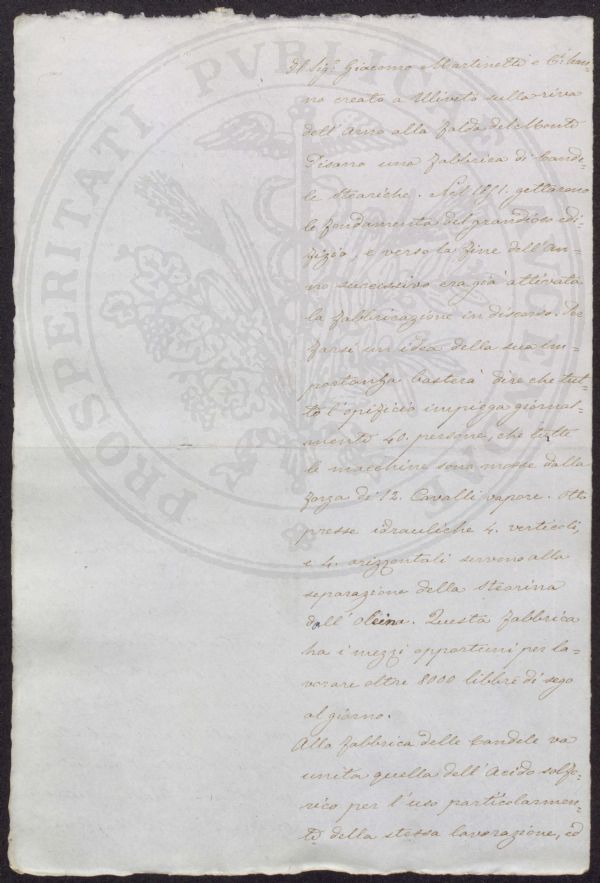 Sig.ri Giacomo Martinetti e C.i han-
no creato a Uliveto sulla riva
dell'Arno alla falda del Monte
Pisano una fabbrica di Cande-
le Steariche. Nel 1851. gettarono
le fondamenta del grandioso edi-
fizio, e verso la fine dell'An-
no successivo era già attivata
la fabbricazione in discorso. Per
farsi un idea della sua im-
portanza basterà dire che tut-
to l'opificio impiega giornal-
mente 40. persone, che tutte
le macchine sono mosse dalla
forza di 12. Cavalli vapore. Otto
presse idrauliche 4. verticali,
e 4. orizzontali servono alla
separazione della Stearina
dall'Oleina. Questa fabbrica
ha i mezzi opportuni per la-
vorare oltre 8000 libbre di sego
al giorno.
Alla fabbrica delle Candele va
unita quella dell'Acido solfo-
rico per l'uso particolarmen-
te della stessa lavorazione, ed
PROSPERITATI PVBLICAE AVGENDAE